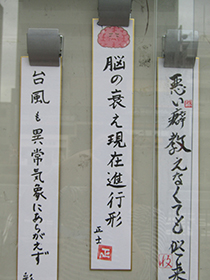 悪い癖教えなくても似
脳の衰え現在進行形
正士
正
台風も異常気象にあらがえず
彩